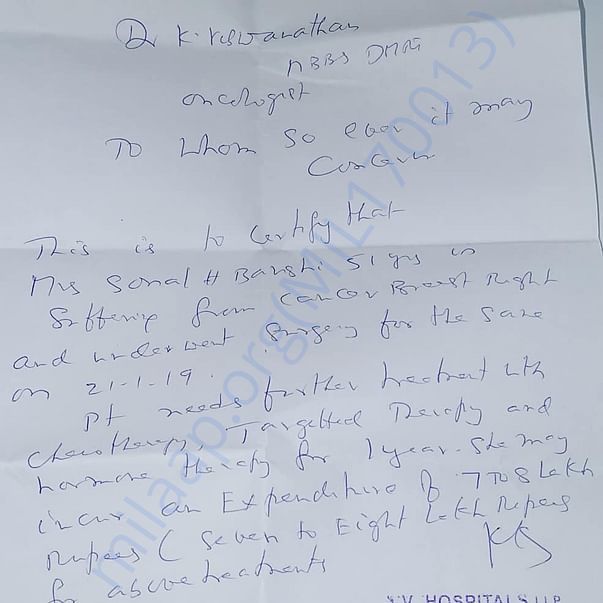 Dr K. Viswanathan
MBBS DMRT
oncologist
To whom so ever it may
Concern
This is to certify that
Mrs Sonal H Banshi 51 yrs is
Suffering from cancer Breast Right
and underwent surgery for the same
on 21-1-19.
Pt needs further treatment with
Chemotherapy, Targetted Therapy and
hormone therapy for 1 year. She may
incur an Expenditure of 7 To 8 Lakh
Rupees ( Seven to Eight Lakh Rupees
for above treatments
S.V. HOSPITALS LLP
milaap.org(MIL170013)